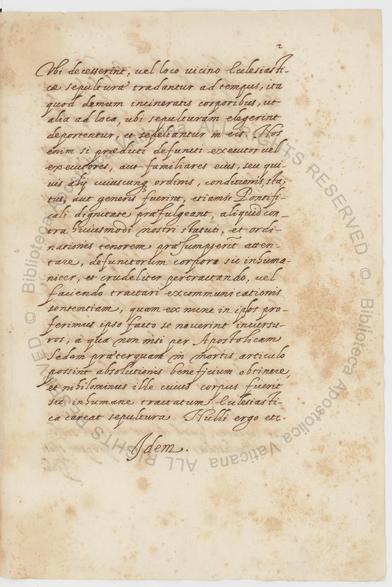 2
Vbi decesserint, uel loco uicino Eclesiasti-
cæ sepulturæ tradantur ad tempus, ita
quod demum incineratis corporibus, ut
alia ad loca, ubi sepulturam elegerint
deportentur, et sepeliantur in eis. Nos
enim si prædicti defuncti executor uel
executores, aut familiares eius, seu qui-
uis alij cuiuscunq ordinis, conditionis, sta-
tus, aut generis fuerint, etiamsi Pontifi-
cali dignitate præfulgeant, aliquid con-
tra huiusmodi nostri statuti, et ordi-
nationis tenorem præsumpserit atten-
tare, defunctorum corpora sic inhuma-
niter, et crudeliter pertractando, uel
faciendo tractari excommunicationis
sententiam, quam ex nunc in ipsos pro-
ferimus ipso facto se nouerint incursu-
ros, a qua non nisi per Apostolicam
Sedem præterquam in mortis articulo
possint absolutionis beneficium obtinere,
et nihilominus ille cuius corpus fuerit
sic inhumane tractatum Eclesiasti-
ca careat sepultura. Nulli ergo etc.
Idem.
© Biblioteca Apostolica Vaticana ALL RIGHTS RESERVED